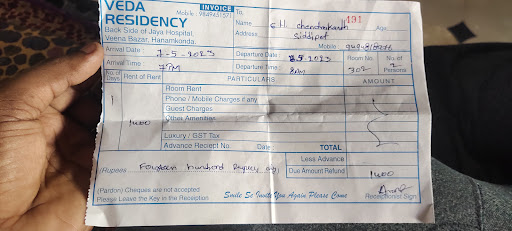 VEDA
RESIDENCY
INVOICE
Mobile : 9849451571
To,
Back Side of Jaya Hospital,
Veena Bazar, Hanamkonda.
131
Name CH chandrakanth
Address Siddipet
Mobile :
Arrival Date : 7-5-2023
Departure Date : 8.5.2023
Room No. 302
No. of Persons 2
Arrival Time : 7PM
Departure Time : 8AM
No. of Days
Rent of Rent
PARTICULARS
AMOUNT
1
1400
Room Rent
Phone / Mobile Charges if any
Guest Charges
Other Amenities
Luxury / GST Tax
Advance Reciept No. Date
TOTAL
Less Advance
Rupees Fourteen hundred Rupees only
Due Amount Refund 1400
(Pardon) Cheques are not accepted
Please Leave the Key in the Reception
Smile So Invite You Again Please Come
Receptionist Sign.